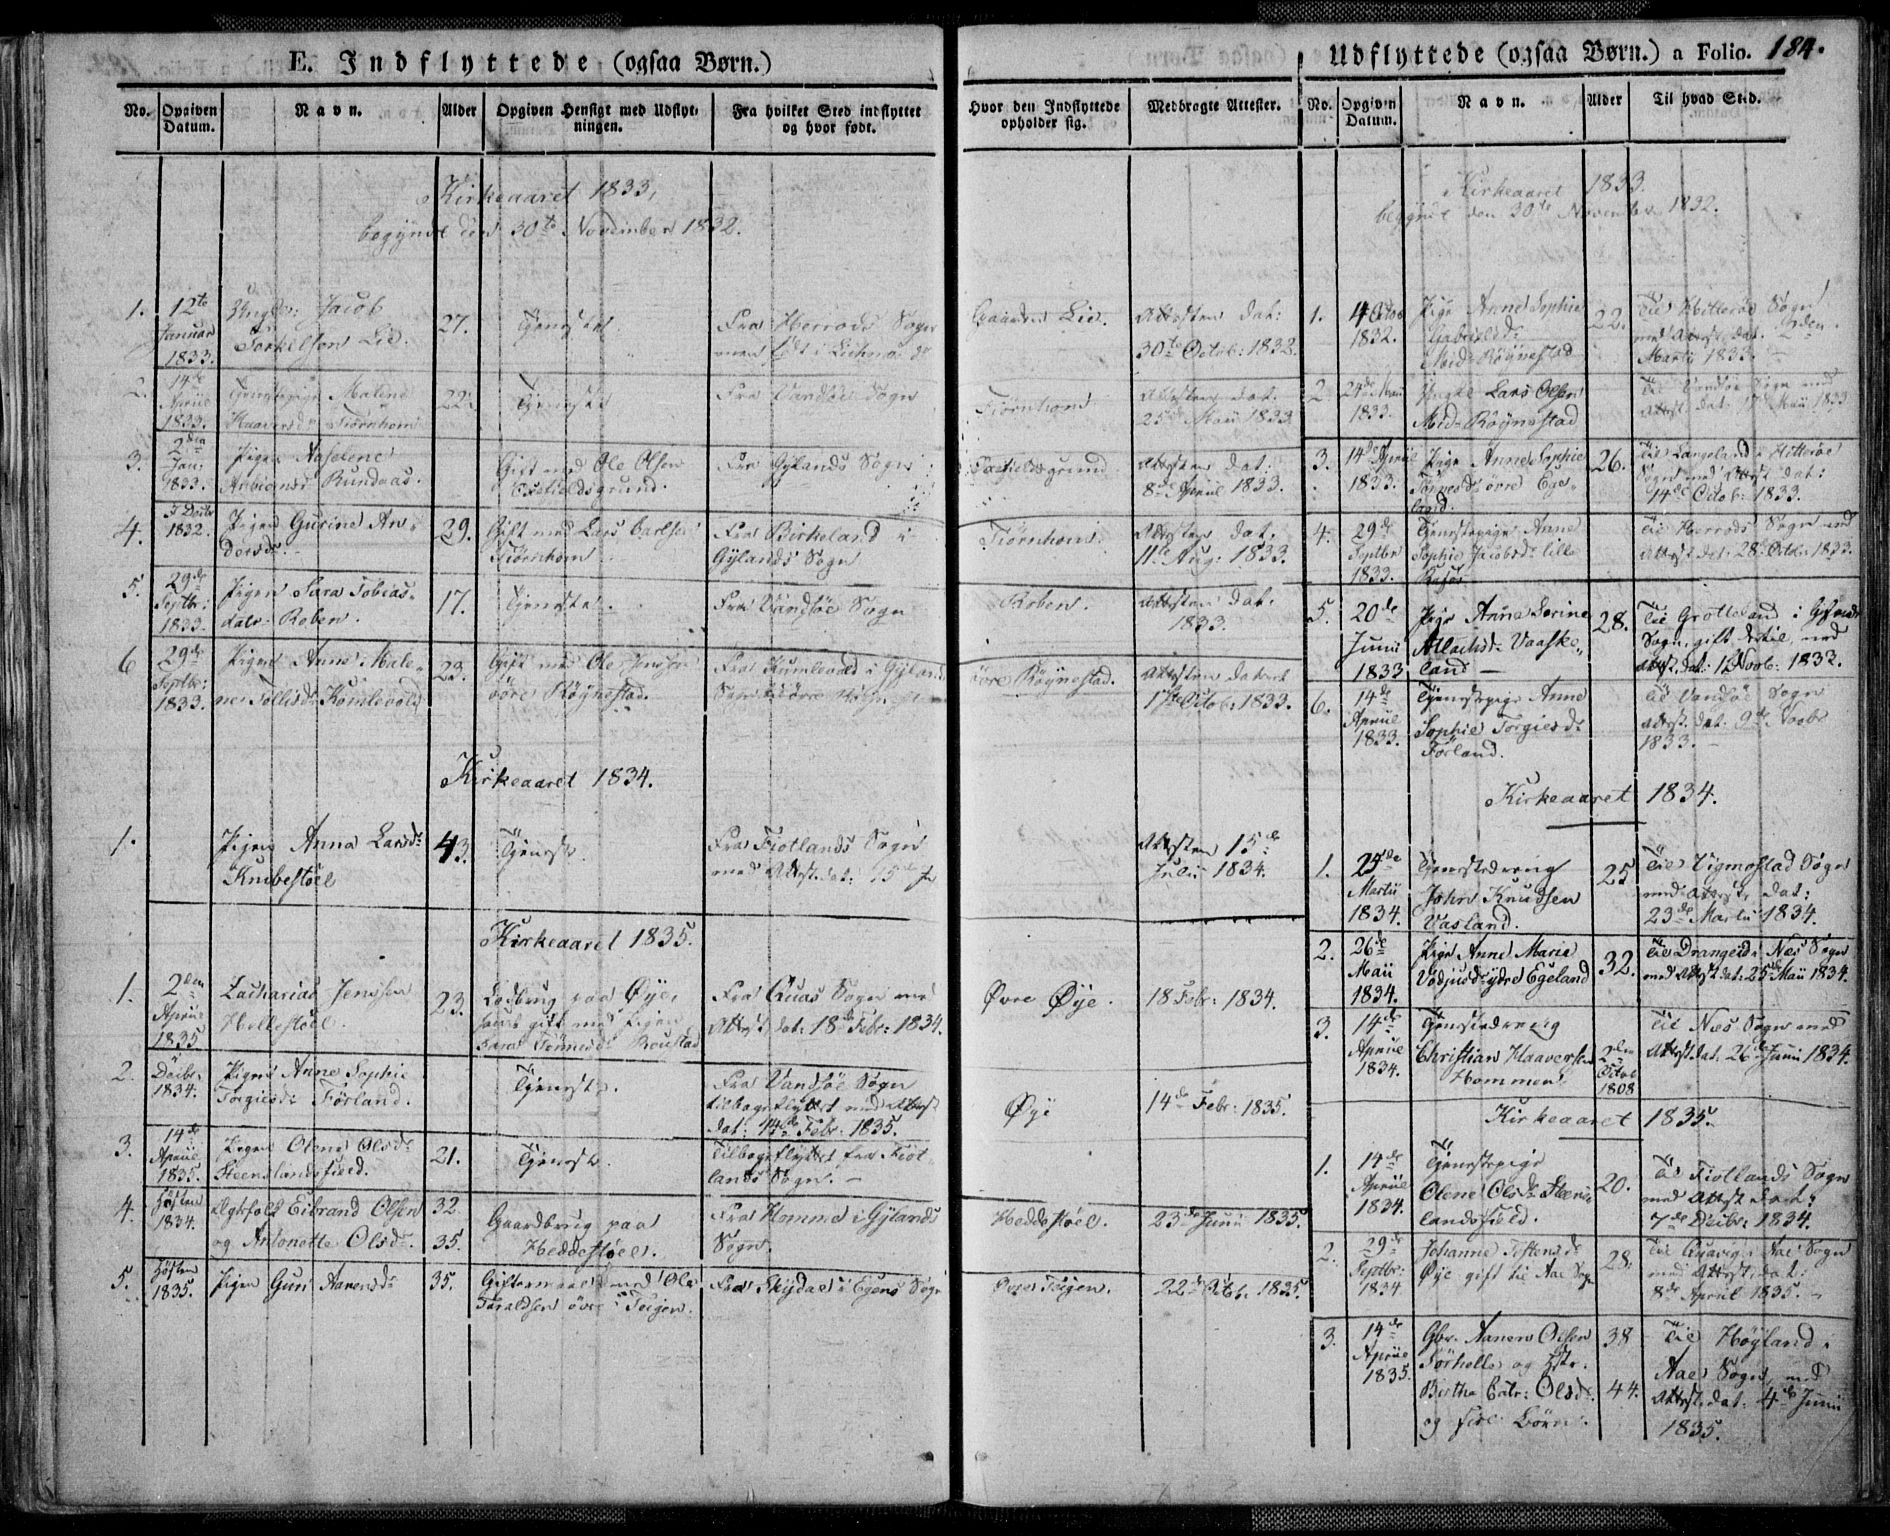 E. Indflyttede (ogsaa Børn.)
No.
Opgiven Datum.
Navn.
Alder
Opgiven Hensigt med Udflytningen.
Fra hvilket Sted indflyttet og hvor født.
Hvor den Indflyttede opholder sig.
Medbragte Attester.
Kirkeaaret 1833,
begyndt den 30te November 1832.
1. 12te Januar 1833. Jacob Torkelsen Lie. 27. Tjeneste Fra Herrods Sogn Gaarden Lie. Attesten dat: 30te Octob: 1832
2. 14de April 1833. Tjenestepige Malene Haaversd: Tiørnhom 22. Tjeneste Fra Vandsøe Sogn Tiørnhom Attesten dat. 25de Maii 1833
3. 2den Jan: 1833. Pigen Aaselene Rundaas. Gift med Ole Olsen Fra Gylands Sogn Attesten dat: 8de April 1833.
4. 1832. Pigen Gurine Andersd: 29. Gift med Lars Carlsen Tiørnhom Fra Birkeland i Gylands Sogn Tiørnhom Attesten dat. 11te Aug: 1833.
5. 29de Septbr: 1833. Pigen Sara Tobiasdatr Roben. 17. Tjeneste. Fra Vandsøe Sogn Roben. Attesten dat. 1833.
6 29de Septbr: 1833. Pigen Anne Malene Tollisd: Kumlevold 23. Gift med Ole øvre Røynestad. Fra Kumlevold i Gyland øvre Røynestad. Attesten dateret 17de Octob: 1833.
Kirkeaaret 1834.
1. Pigen Anna Larsd: Knibestøel 43. Tjeneste. Fra Fiotlands Sogn med Attest dat: 15de Attesten 15de Julii 1834.
Kirkeaaret 1835.
1. 2den April 1835 Zacharias Jensen Hellestøel. 23. Jordbrug paa Øye, gift med Pigen Sara Tønnesd: Roustad Fra Quas Sogn med Attest dat: 18de Febr: 1834. Øvre Øye. 18 Febr: 1834.
2. Decbr. 1834. Pigen Anne Sophie Torgiesd: Førland. Tjeneste. Fra Vandsøe Sogn tilbageflyttet med Attest dat: 14de Febr: 1835. Øye 14de Febr: 1835.
3. 14de April 1835. Pigen Olene Olsd: Steenslandsfield. 21. Tjeneste. Tilbageflyttet fra Fiotlands Sogn.
4. Høsten 1834. Ægtfolk Eibrand Olsen og Antonette Olsd: 32. 35. Gaardbrug paa Heddestøel. Fra Homme i Gylands Sogn. Heddestøel. 23de Junii 1835.
5. Høsten 1835. Pigen Guri Aanensd: 35. Giftermaal med Ole Taraldsen øvre Teigen. Fra Skydal i Egens Sogn Øvre Teigen. 22de Octob. 1835.
Udflyttede (ogsaa Børn.) a Folio. 184.
No.
Opgiven Datum.
Navn.
Alder
Til hvad Sted.
Kirkeaaret 1833.
begyndt den 30te November 1832.
1. 14 Octob 1832. Pige Anne Sophie Gabrielsd: Mid-Røynestad 22. Til Hitterøe Sogn med Attest dat. 2den Martii 1833.
2. 24de Maii 1833. Lars Olsen Mid-Røynestad Til Vandsøe Sogn med Attest dat: 17de Maii 1833
3. 14de April 1833. Pige Anne Sophie Tønnesd: øvre Egeland. 26. Til Langeland i Hitterøe Sogn med Attest dat: 14de Octob: 1833.
4. 29de Septbr 1833. Tjenestepige Anne Sophie Jacobsd: lille Til Herrods Sogn med Attest dat: 28de Octbr: 1833.
5. 20de Junii 1833 Pige Anne Serine Atlachsd: Vaaskeland 28. Til Grøtteland i Gylands Sogn, gift dertil, med Attest. dat: 1 Novb: 1833.
6. 14de April 1833. Tjenestepige Anne Sophie Torgiesd: Førland. Til Vandsøe Sogn Attest. dat: 9de Novbr 1833.
Kirkeaaret 1834.
1. 25de Martii 1834. Tjenestedreng John Knudsen Vasland. 25 Til Vigmostad Sogn med Attest, dat: 23de Martii 1834.
2. 26de Maii 1834. Pige Anne Marie ydre Egeland 32. Til Drangeid i Næs Sogn med Attest dat: 25de Maii 1834.
3. 14de April 1834. Tjenestedreng Christian Haaversen Hommen 2den Octob 1808 Til Næs Sogn med Attest. dat: 26de Junii 1834.
Kirkeaaret 1835.
1. 14de April 1834. Tjenestepige Olene Olsd: Steenslandsfield. 20. Til Fiotlands Sogn med Attest dat: 7de Decbr: 1834.
2. 29de Septbr: 1834 Johanne Tostensd: Øye gift til Aae Sogn 28. Til Quavig i Aae Sogn med Attest, dat: 8de April 1835.
3. 14de April 1835. Gbr. Aanen Olsen Sørhelle og Hstr. Birthe Catr: Olsd: og fire Børn. 38 44. Til Høyland i Aae Sogn, med Attest. dat: 4de Junii 1835.